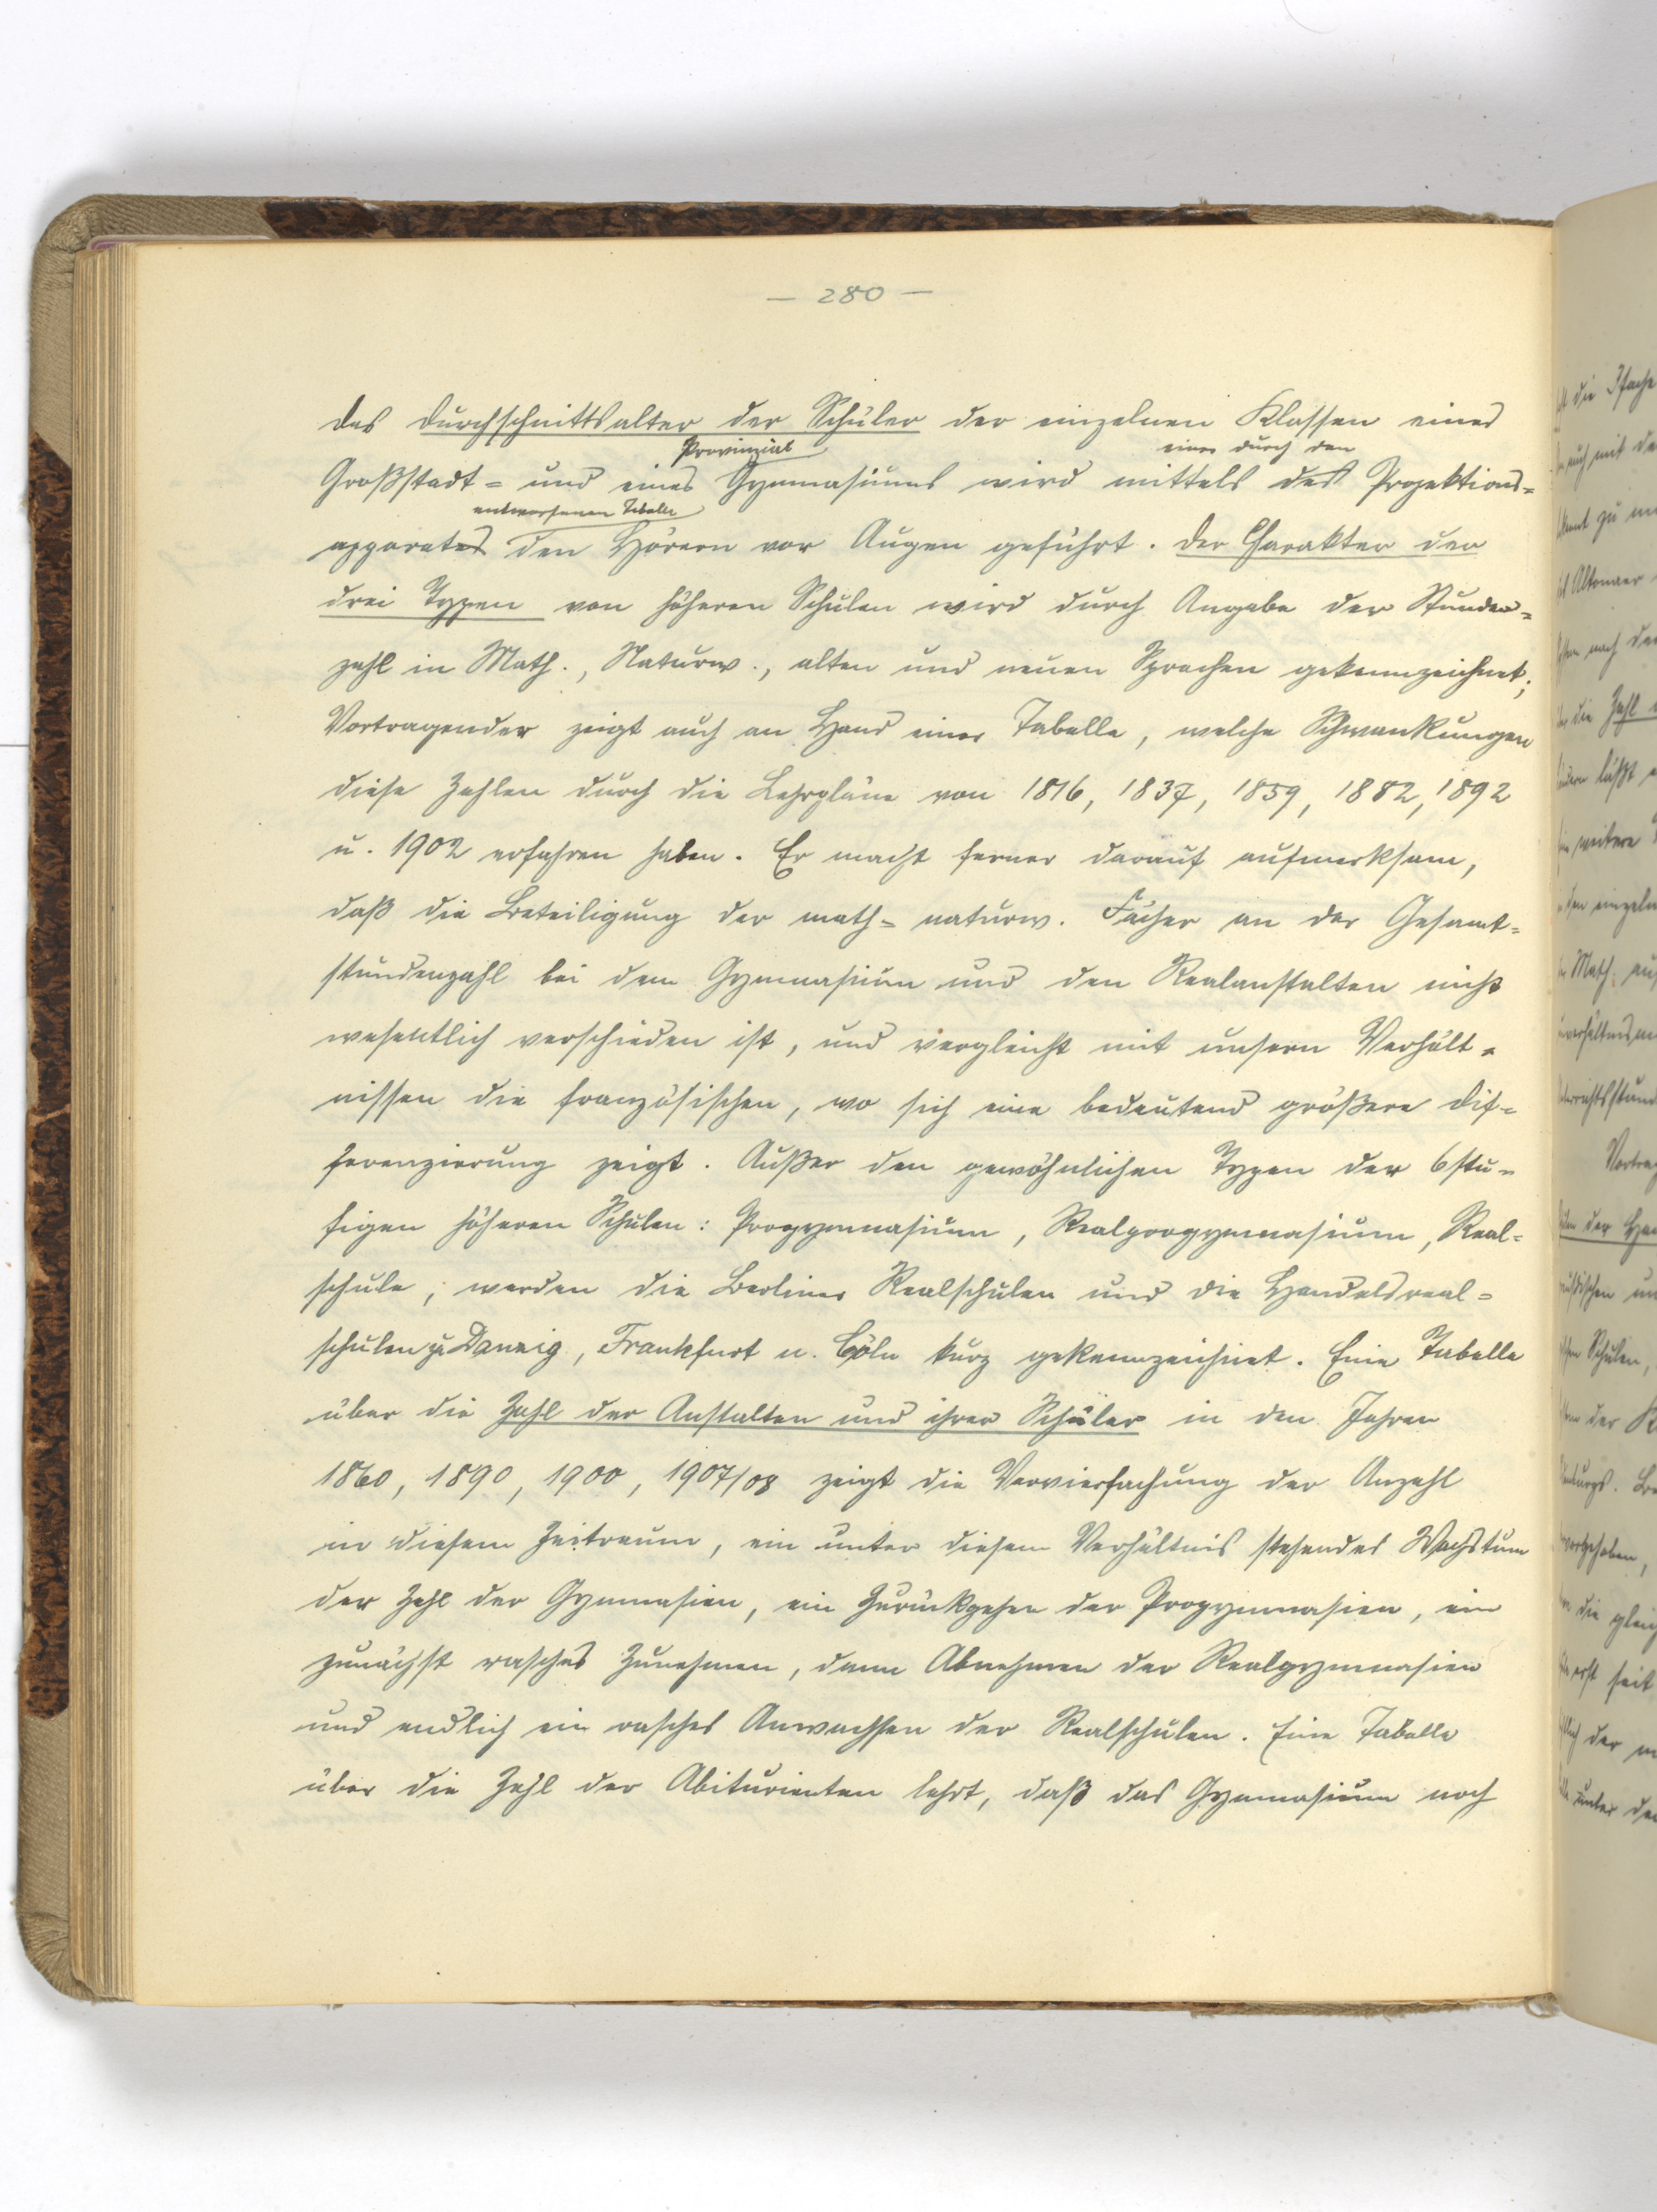 — 280 —
Das Durchschnittsalter der Schüler der einzelnen Klassen eines
Provinzial einer durch den
Großstadt- und eines Gymnasiums wird mittels des Projektions-
entworfenen Tabelle
apparates den Hörern vor Augen geführt. Der Charakter der
drei Typen von höheren Schulen wird durch Angabe der Stunden-
zahl in Math., Naturw., alten und neuen Sprachen gekennzeichnet;
Vortragender zeigt auch an Hand einer Tabelle, welche Schwankungen
diese Zahlen durch die Lehrpläne von 1816, 1837, 1859, 1882, 1892
u. 1902 erfahren haben. Er macht ferner darauf aufmerksam,
daß die Beteiligung der math-naturw. Fächer an der Gesamt-
stundenzahl bei dem Gymnasium und den Realanstalten nicht
wesentlich verschieden ist, und vergleicht mit unsern Verhält-
nissen die französischen, wo sich eine bedeutend größere Dif-
ferenzierung zeigt. Außer den gewöhnlichen Typen der 6stu-
figen höheren Schulen: Progymnasium, Realprogymnasium, Real-
schule, werden die Berliner Realschulen und die Handelsreal-
schulen zu Danzig, Frankfurt u. Cöln kurz gekennzeichnet. Eine Tabelle
über die Zahl der Anstalten und ihrer Schüler in den Jahren
1860, 1890, 1900, 1907/08 zeigt die Vervierfachung der Anzahl
in diesem Zeitraum, ein unter diesem Verhältnis stehendes Wachstum
der Zahl der Gymnasien, ein Zurückgehen der Progymnasien, ein
zunächst rasches Zunehmen, dann Abnehmen der Realgymnasien
und endlich ein rasches Anwachsen der Realschulen. Eine Tabelle
über die Zahl der Abiturienten lehrt, daß das Gymnasium noch